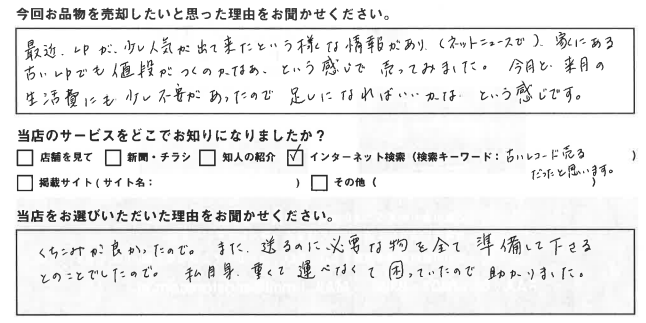 今回お品物を売却したいと思った理由をお聞かせください。
最近、LPが、少し人気が出て来たという様な情報があり、(ネットニュースで)、家にある
古いLPでも値段がつくのかなあ、という感じで売ってみました。今月と、来月の
生活費にも少し不安があったので足しになればいいかな、という感じです。
当店のサービスをどこでお知りになりましたか？
店舗を見て 新聞・チラシ 知人の紹介 ✓ インターネット検索 (検索キーワード：古いレコード売る
だったと思います。)
掲載サイト(サイト名： ) その他( )
当店をお選びいただいた理由をお聞かせください。
くちこみが良かったので。また、送るのに必要な物を全て準備して下さる
とのことでしたので。私自身、重くて運べなくて困っていたので助かりました。